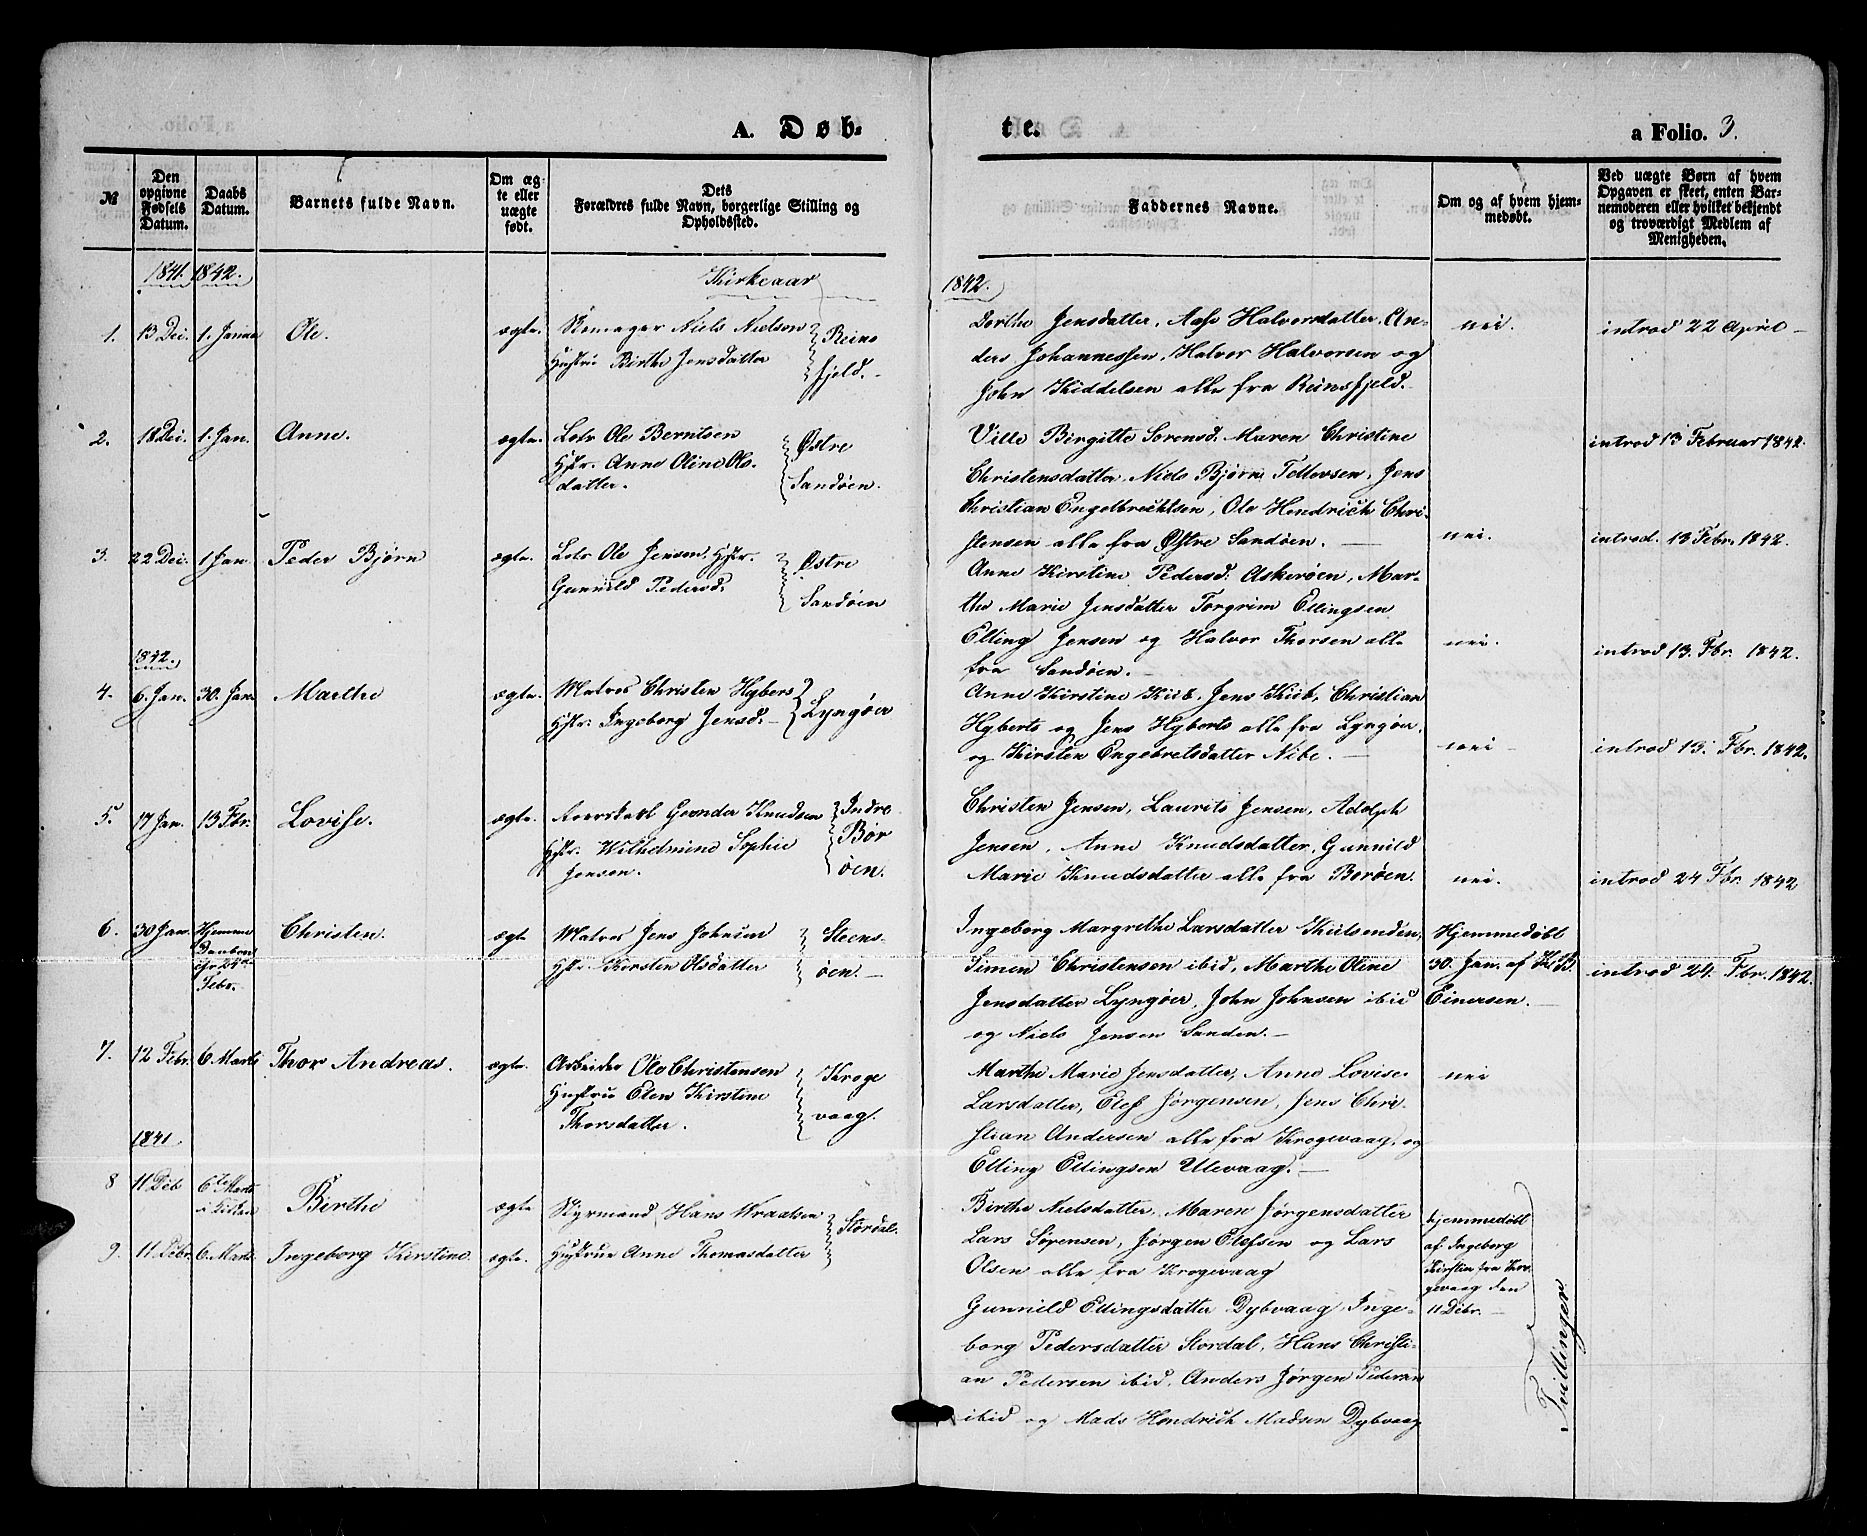 A. Døb-
te.
a Folio. 3.
№
Den opgivne Fødsels Datum.
Daabs Datum.
Barnets fulde Navn.
Om ægte eller uægte født.
Dets Forældres fulde Navn, borgerlige Stilling og Opholdssted.
Faddernes Navne.
Om og af hvem hjemmedøbt.
Ved uægte Børn af hvem Opgaven er skeet, enten Barnemoderen eller hvilket bekjendt og troværdigt Medlem af Menigheden.
1841. 1842.
Kirkeaar
1842.
1. 13 Dec. 1. Janua Ole. ægte. Skomager Niels Nielsen
Hustru Birthe Jensdatter
Reins
fjeld.
Dorthe Jensdatter, Aase Halvorsdatter, An-
ders Johannessen, Halvor Halvorsen og
John Kiddelsen alle fra Reinsfjeld.
nei.
introd 22 April
2. 18 Dec. 1. Jan. Anne. ægte. Lots Ole Berntsen
Hstr. Anne Oline Ols-
datter.
Østre
Sandøen.
Ville Birgitte Sorensd. Maren Christine
Christensdatter, Niels Bjørn Tellevsen, Jens
Christian Engelbrechtsen, Ole Hendrich Chri-
stensen alle fra Østre Sandøen.
nei.
introd 13 Februar 1842.
3. 22 Dec. 1 Jan. Peder Bjørn ægte. Lots Ole Jensen Hstr.
Gunnild Pedersd.
Østre
Sandøen
Anne Kirstine Pedersd: Askerøen, Mar-
the Marie Jensdatter Torgrim Ellingsen
Elling Jensen og Halvor Thorsen alle
fra Sandøen.
nei.
introd. 13 Febr. 1842.
1842.
4. 6. Jan. 30. Jan. Marthe ægte. Matros Christen Hyberts
Hstr. Ingeborg Jensd.
Lyngøer
Anne Kirstine Kiib, Jens Kiib, Christian
Hyberts og Jens Hyberts alle fra Lyngøer,
og Kirsten Engebretsdatter Nibe.
nei
introd 13. Fbr. 1842.
introd 13. Fbr. 1842.
5. 17 Jan. 13 Fbr. Lovise. ægte. Gunder Knudsen
Hstr. Wilhelmine Sophie
Jensen.
Indre
Bor
øen.
Christen Jensen, Laurits Jensen, Adolph
Jensen, Anne Knudsdatter, Gunnild
Marie Knudsdatter alle fra Borøen.
nei.
introd 24 Fbr. 1842
6. 30 Jan. Hjemme
24de
Febr.
Christen. ægte Matros Jens Johnsen
Hstr. Kirsten Olsdatter
Steens-
øen.
Ingeborg Margrethe Larsdatter
Simen Christensen ibid, Marthe Oline
Jensdatter Lyngøer, John Johnsen ibid
og Niels Jensen Sanden.
Hjemmedøbt
30. Jan. af
Einersen.
introd 24. Fbr. 1842.
7. 12 Febr. 6 Marts Thor Andreas. ægte. Arbeider Ole Christensen
Hustrue Elen Kirstine
Thorsdatter.
Kroge
vaag.
Marthe Marie Jensdatter, Anne Lovise
Larsdatter, Elef Jørgensen, Jens Chri-
stian Andersen alle fra Krogevaag, og
Elling Ellingsen Ulevaag.
nei
1841
8 11 Dcb 6te Marts
Birthe ægte Styrmand Hans Wraalsen
Stordal.
Birthe Nielsdatter, Maren Jørgensdatter
Lars Sørensen, Jørgen Elefsen og Lars
Olsen alle fra Krogevaag
hjemmedøbt
af Ingeborg
Kirstine fra Kro-
gevaag den
11 Dcbr.
9. 11 Dcbr. 6. Marts Ingeborg Kirstine. ægte. Hustrue Anne Thomasdatter
Gunnild Ellingsdatter Dybvaag Inge-
borg Pedersdatter Stordal, Hans Christi-
an Pedersen ibid, Anders Jørgen Pedersen
ibid og Mads Hendrich Madsen Dybvaag
Tvillinger